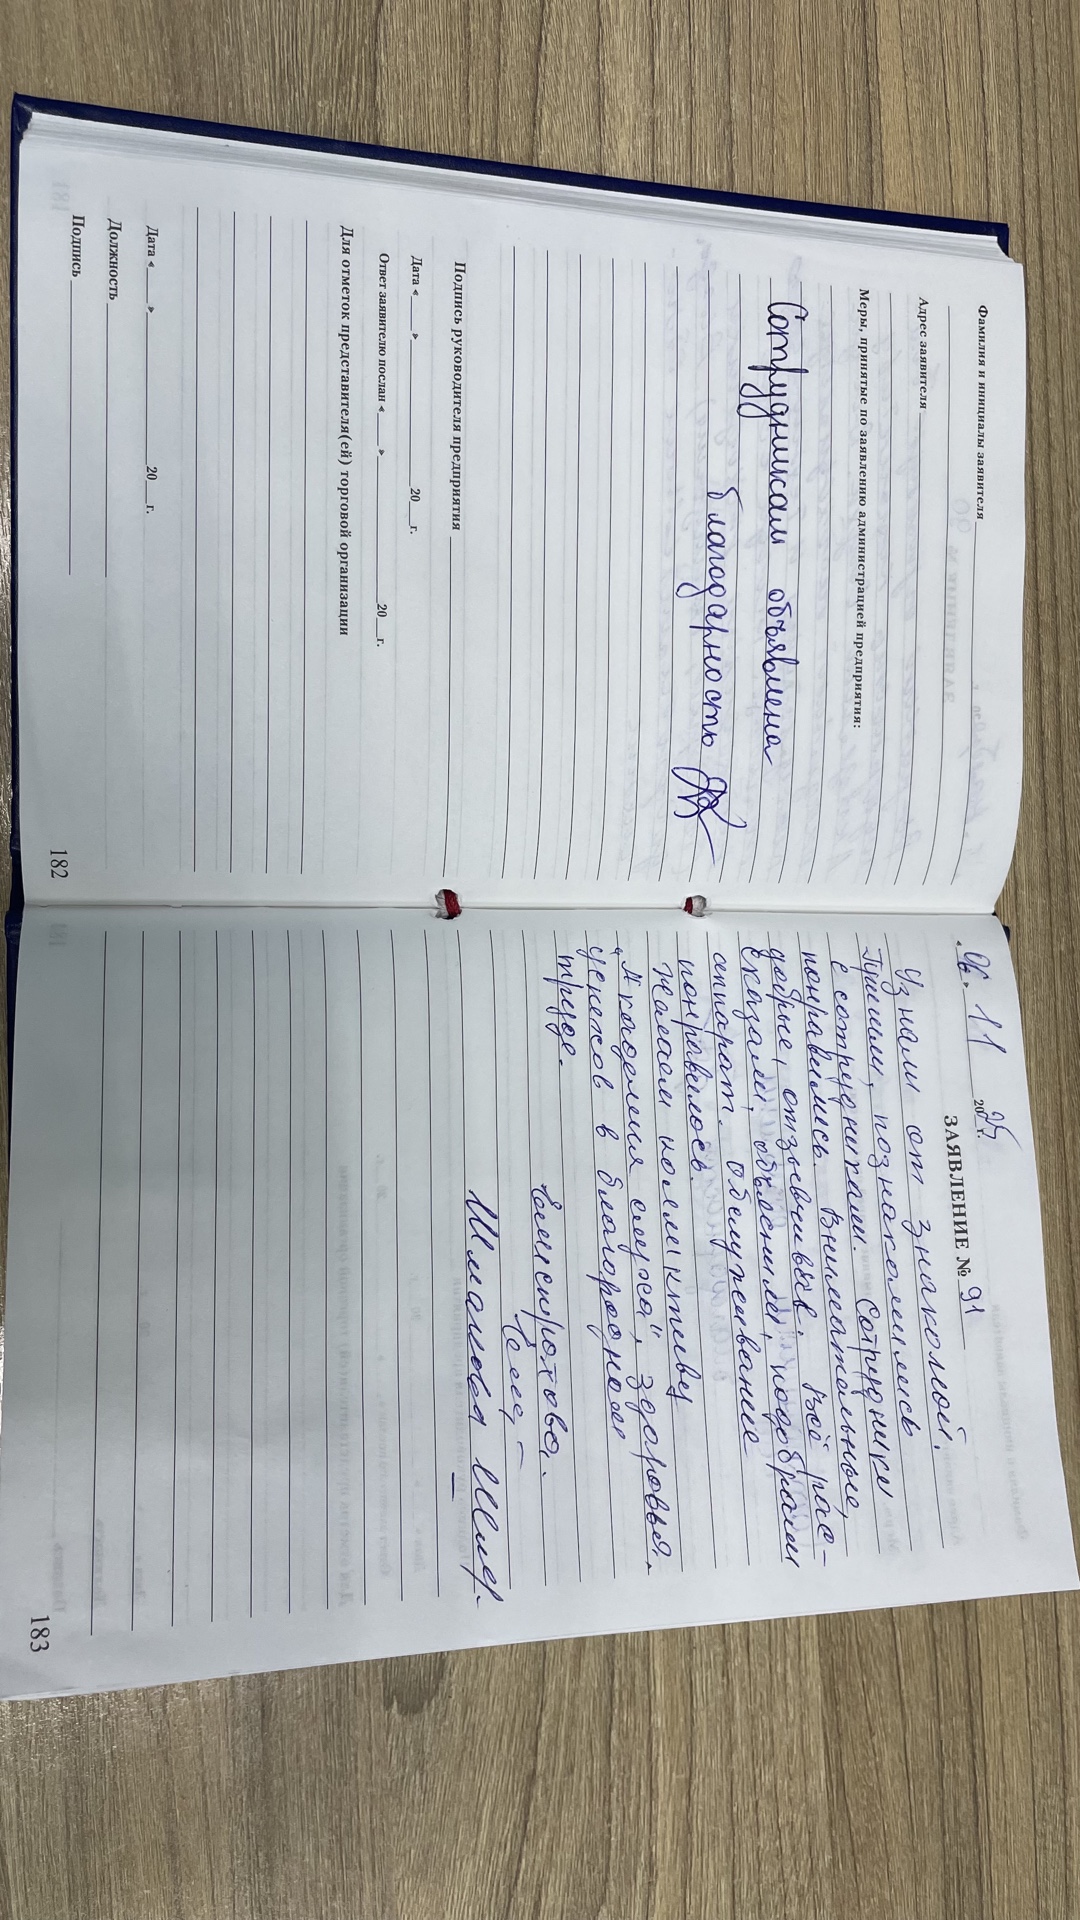 Фамилия и инициалы заявителя
Адрес заявителя
Меры, принятые по заявлению администрацией предприятия:
Сотрудникам объявлена
благодарность
Подпись руководителя предприятия
Дата « » 20 г.
Ответ заявителю послан « » 20 г.
Для отметок представителя(ей) торговой организации
Дата « » 20 г.
Должность
Подпись
182
« 06 » 11 2025 г.
ЗАЯВЛЕНИЕ № 91
Узнали от знакомой.
Пришли, познакомились
с сотрудниками. Сотрудники
понравились. Внимательные,
добрые, отзывчивые. Всё рас-
сказали, объяснили, подобрали
аппарат. Обслуживание
понравилось.
Желаем коллективу
"Академия слуха", здоровья,
успехов в благородном
труде.
183